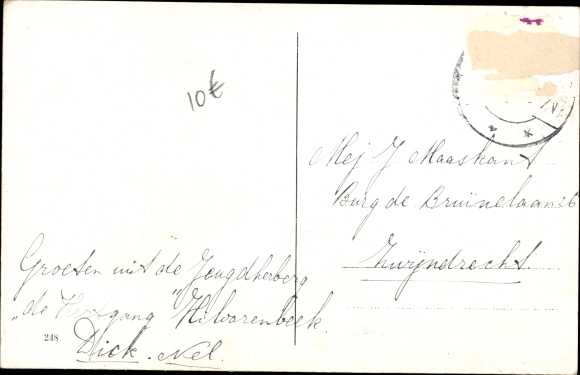 10€
Mej J Maaskant
Burg de Bruïnelaan 26
Zwÿndrecht.
Groeten uit de Jeugdherberg
„de Hertgang" Hilvarenbeek.
248
Dick. Nel.